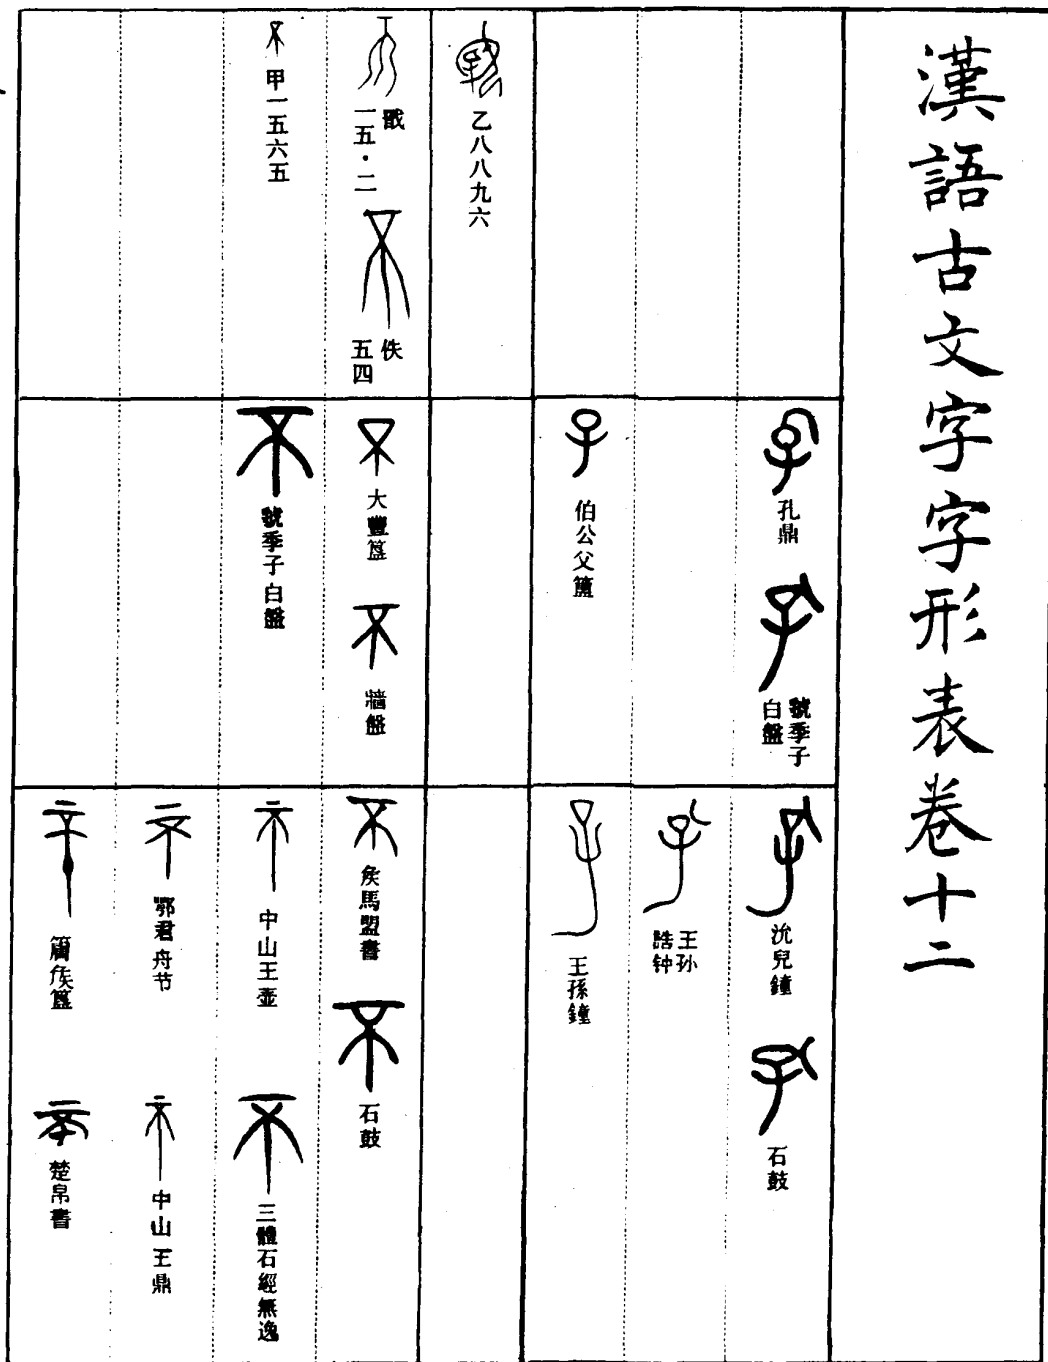 漢語古文字字形表卷十二
孔鼎
虢季子
白盤
沇兒鐘
石鼓
王孙
誥钟
伯公父簠
王孫鐘
乙八八九六
戩
一五・二
佚
五四
大豐簋
牆盤
矦馬盟書
石鼓
甲一五六五
虢季子白盤
中山王壺
三體石經無逸
鄂君舟节
中山王鼎
楚帛書